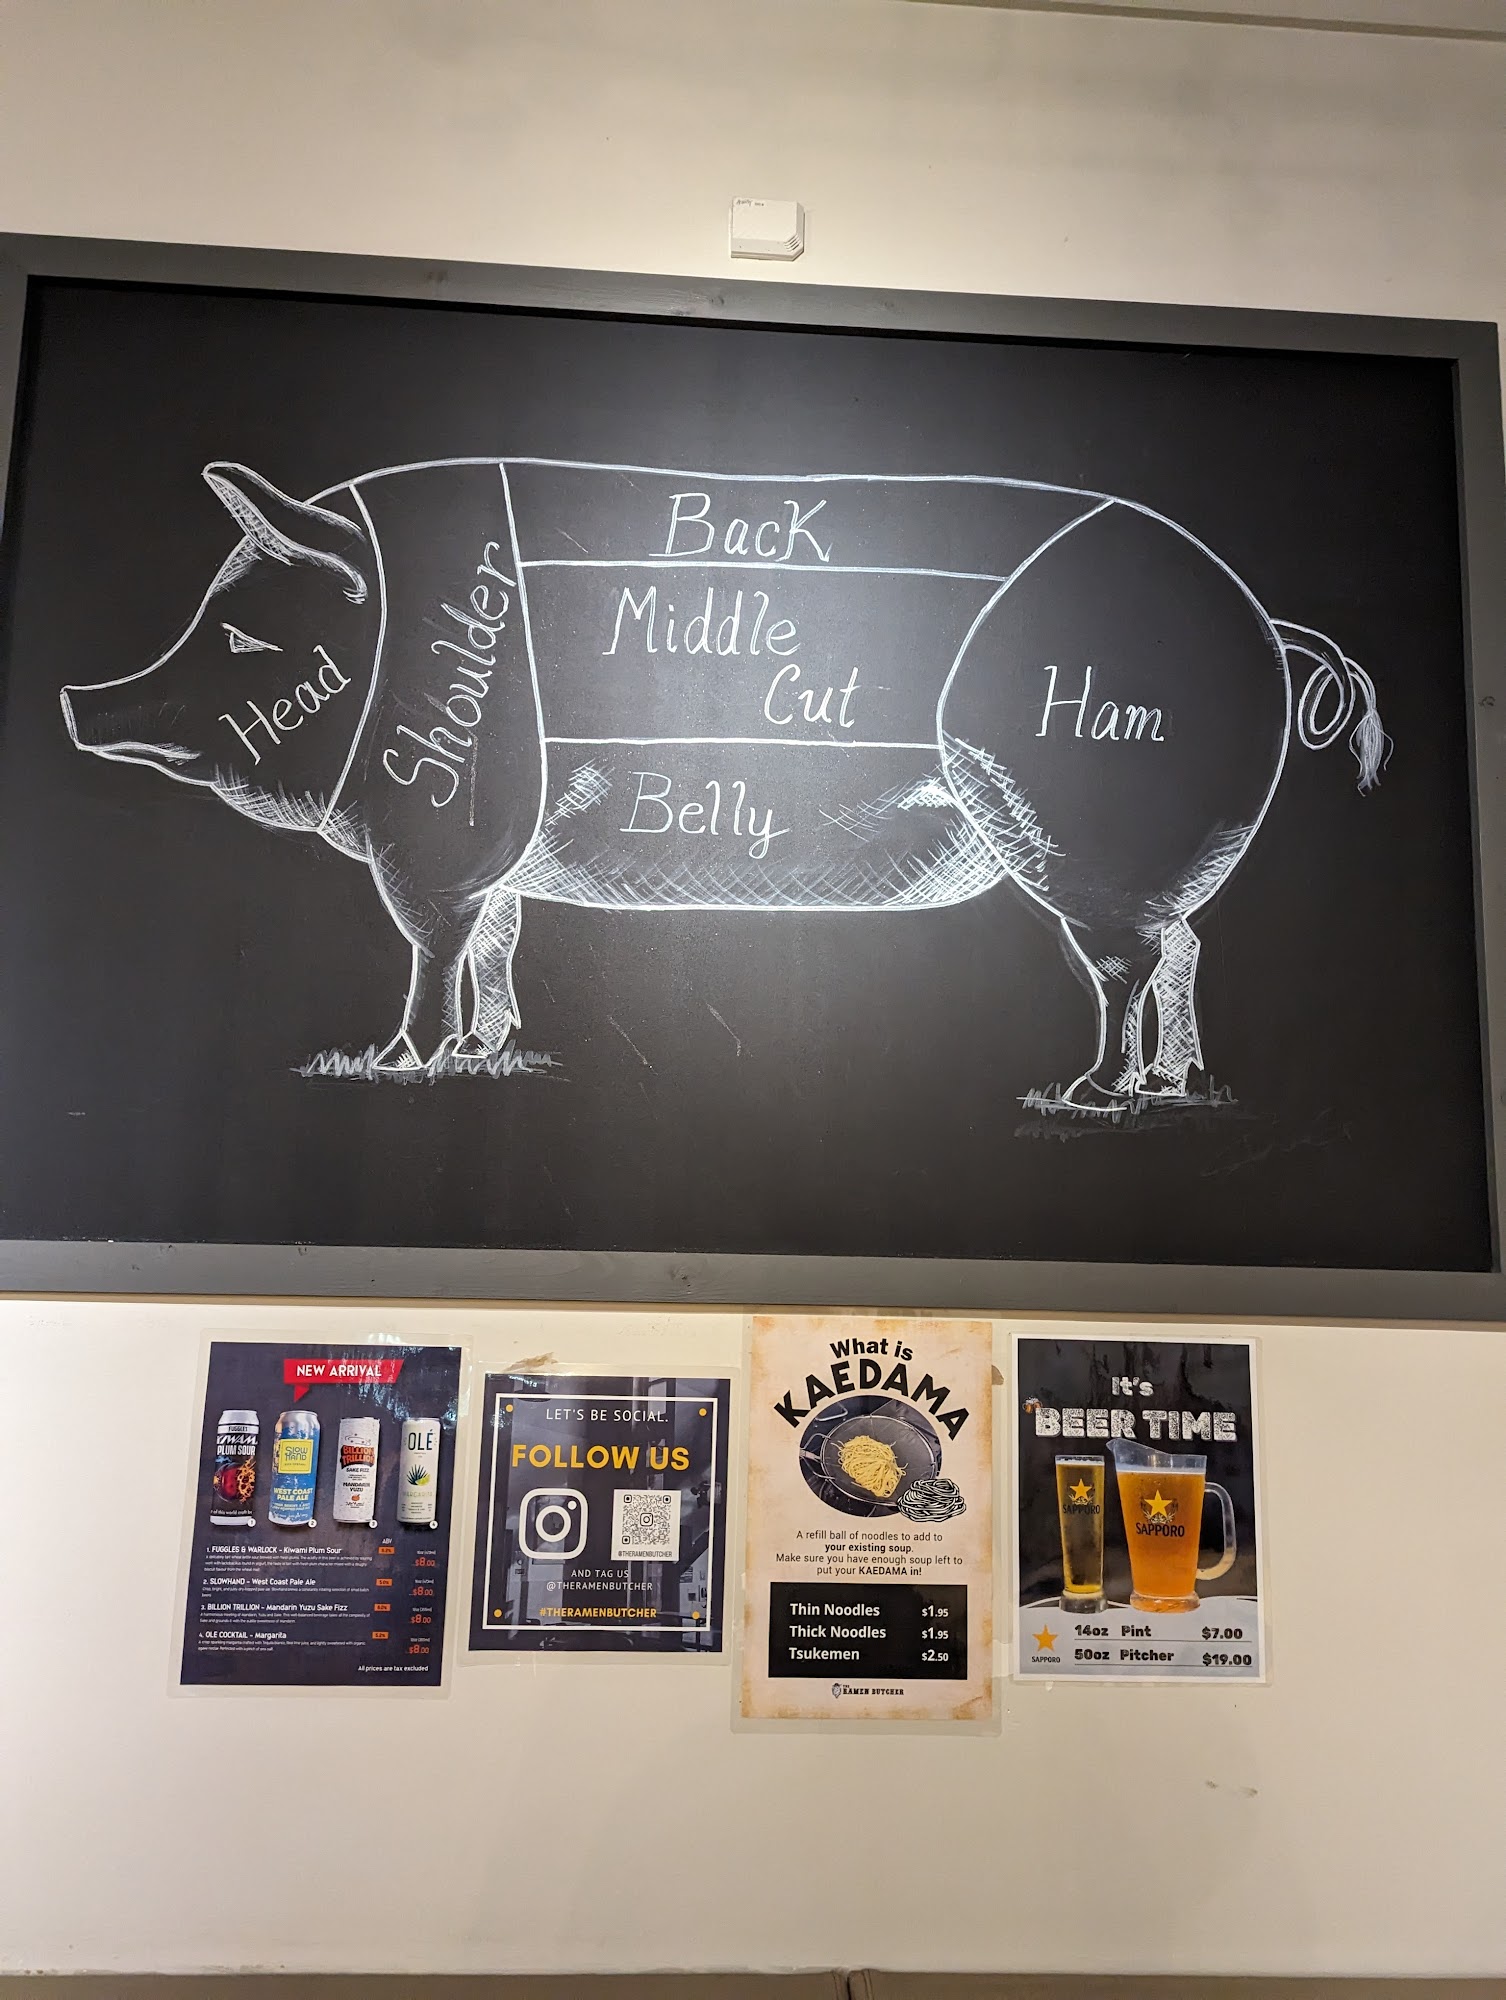 Back
Middle
Cut
Belly
Shoulder
Head
Ham
NEW ARRIVAL
FUGGLES
KIWAMI
PLUM SOUR
SLOW
HAND
WEST COAST
PALE ALE
BILLION
TRILLION
SAKE FIZZ
MANDARIN
YUZU
OLÉ
MARGARITA
1
2
3
4
ABV
1. FUGGLES & WARLOCK - Kiwami Plum Sour
$8.00
2. SLOWHAND - West Coast Pale Ale
$8.00
3. BILLION TRILLION - Mandarin Yuzu Sake Fizz
$8.00
4. OLE COCKTAIL - Margarita
$8.00
All prices are tax excluded
LET'S BE SOCIAL.
FOLLOW US
@THERAMENBUTCHER
AND TAG US
@THERAMENBUTCHER
#THERAMENBUTCHER
What is
KAEDAMA
A refill ball of noodles to add to
your existing soup.
Make sure you have enough soup left to
put your KAEDAMA in!
Thin Noodles $1.95
Thick Noodles $1.95
Tsukemen $2.50
THE
RAMEN BUTCHER
It's
BEER TIME
SAPPORO
SAPPORO
SAPPORO
14oz Pint $7.00
50oz Pitcher $19.00